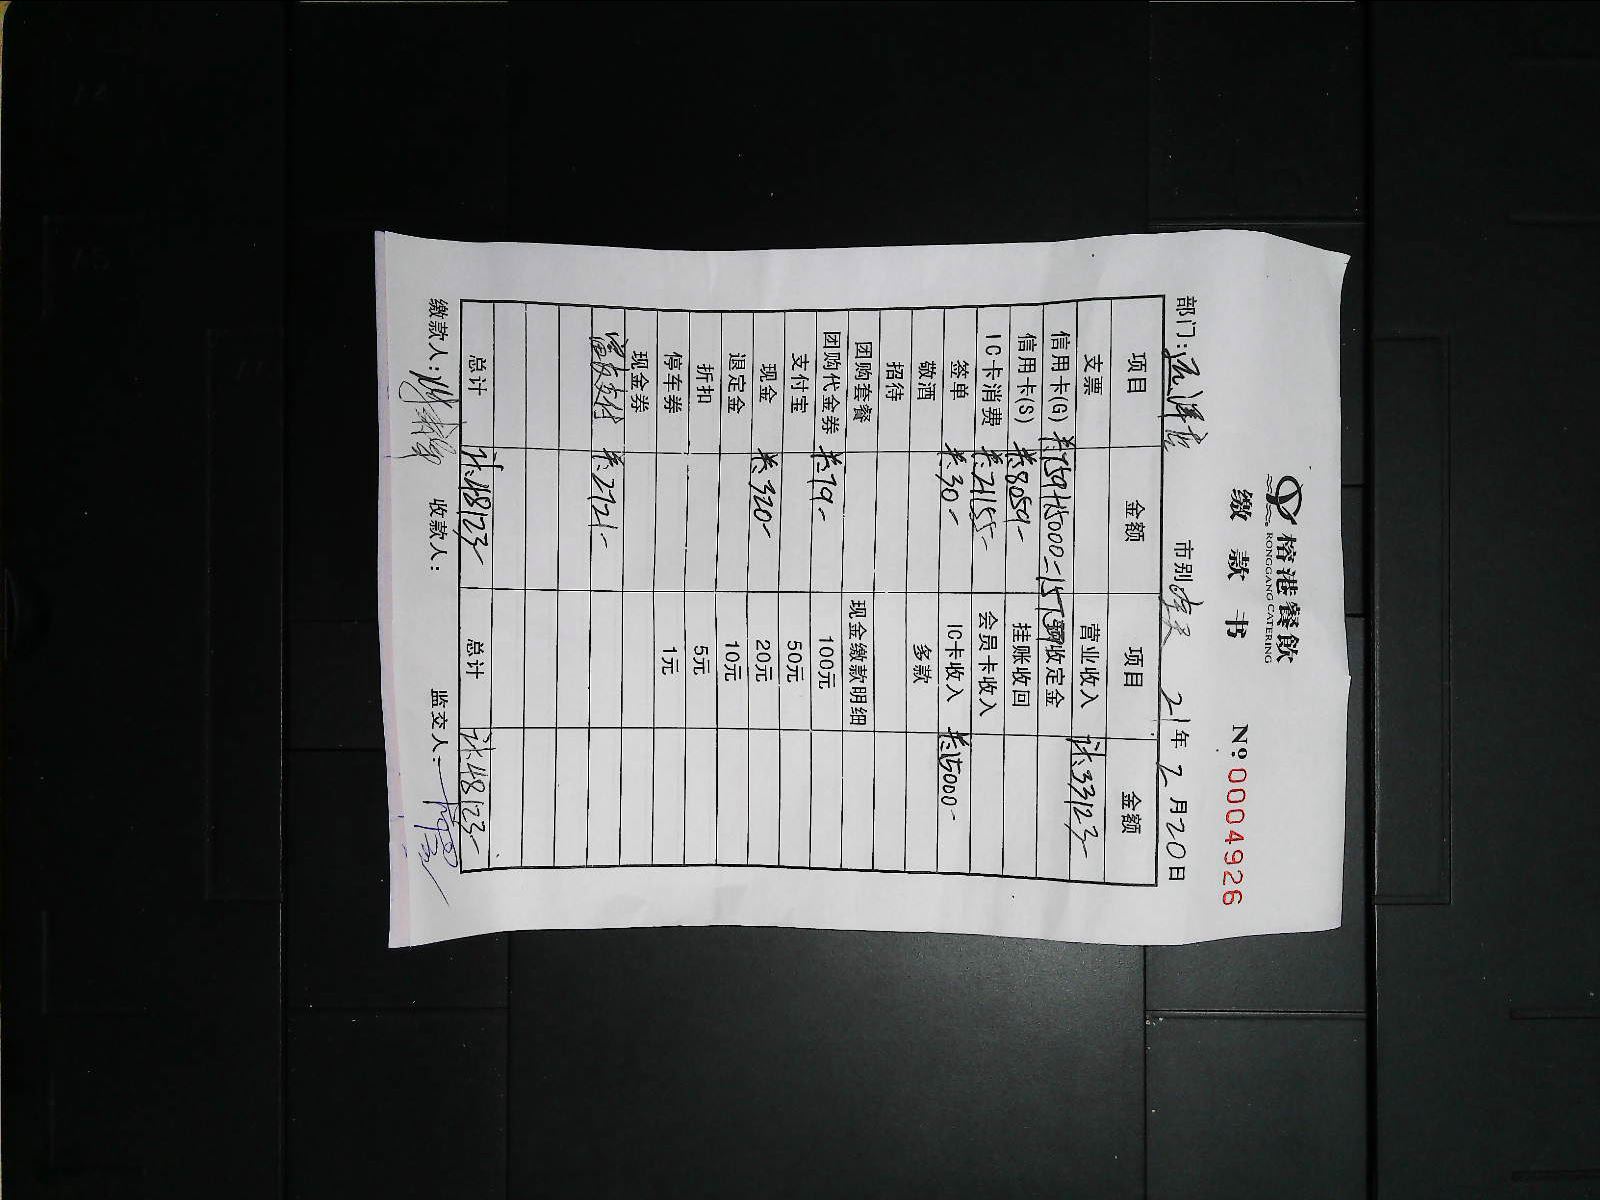 榕港餐飲
RONGGANG CATERING
缴 款 书 Nº 0004926
部门: 市别 21年2月20日
项目 金额 项目 金额
支票 营业收入 计:33123-
信用卡(G) 羊:759+15000=15759 收定金
信用卡(S) 羊:8059- 挂账收回
IC卡消费 羊:21155- 会员卡收入
签单 羊:30- IC卡收入 羊:15000-
敬酒 多款
招待
团购套餐 现金缴款明细
团购代金券 羊:79- 100元
支付宝 50元
现金 羊:320- 20元
退定金 10元
折扣 5元
停车券 1元
现金券
羊:2721-
总计 计:48123- 总计 计:48123-
缴款人: 收款人: 监交人: